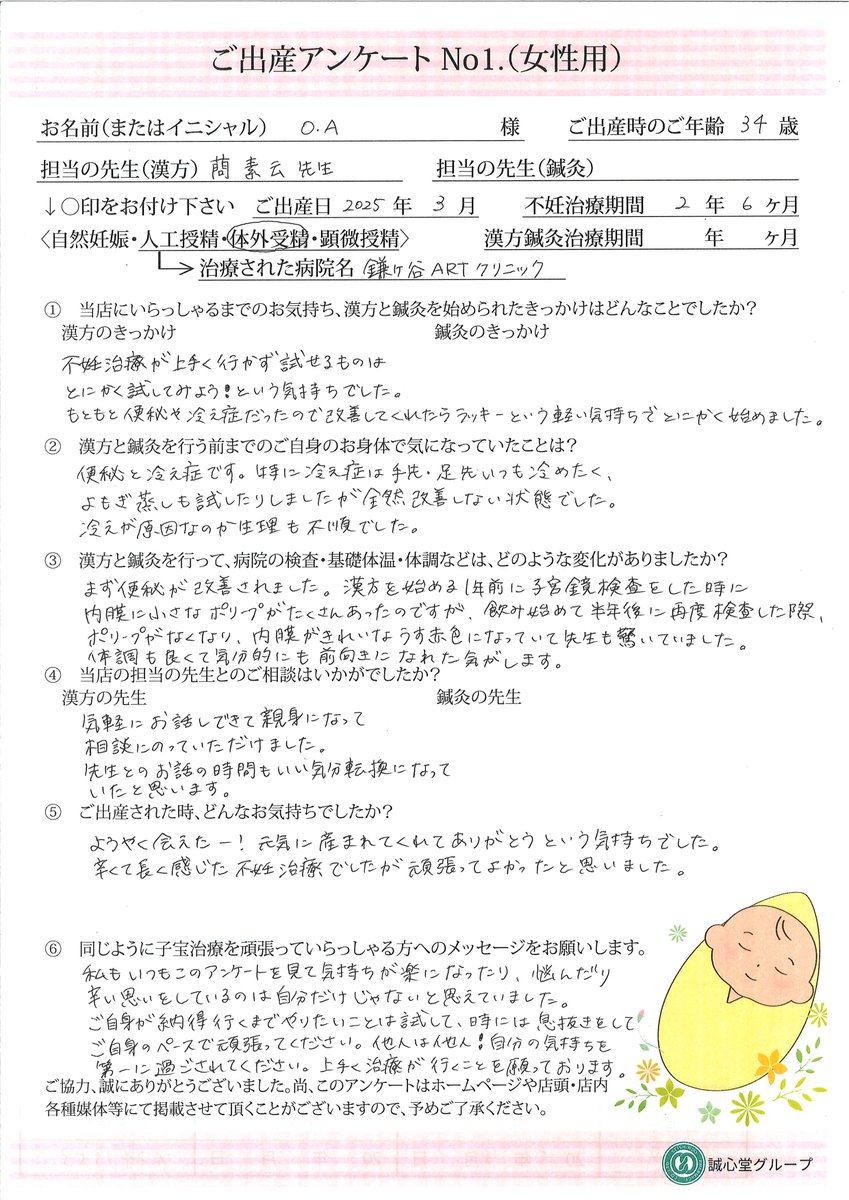 ご出産アンケート No1.(女性用)
お名前(またはイニシャル) O.A 様 ご出産時のご年齢 34 歳
担当の先生(漢方) 蕳 素云 先生 担当の先生(鍼灸)
↓○印をお付け下さい ご出産日 2025 年 3 月 不妊治療期間 2 年 6 ヶ月
〈自然妊娠・人工授精・体外受精・顕微授精〉 漢方鍼灸治療期間 年 ヶ月
治療された病院名 鎌ヶ谷ARTクリニック
① 当店にいらっしゃるまでのお気持ち、漢方と鍼灸を始められたきっかけはどんなことでしたか?
漢方のきっかけ 鍼灸のきっかけ
不妊治療が上手く行かず試せるものは
とにかく試してみよう!という気持ちでした。
もともと便秘や冷え症だったので改善してくれたらラッキーという軽い気持ちでとにかく始めました。
② 漢方と鍼灸を行う前までのご自身のお身体で気になっていたことは?
便秘と冷え症です。特に冷え症は手先・足先いつも冷めたく、
よもぎ蒸しも試したりしましたが全然改善しない状態でした。
冷えが原因なのか生理も不順でした。
③ 漢方と鍼灸を行って、病院の検査・基礎体温・体調などは、どのような変化がありましたか?
まず便秘が改善されました。漢方を始める1年前に子宮鏡検査をした時に
内膜に小さなポリープがたくさんあったのですが、飲み始めて半年後に再度検査した際、
ポリープがなくなり、内膜がきれいなうす赤色になっていて先生も驚いていました。
体調も良くて気分的にも前向きになれた気がします。
④ 当店の担当の先生とのご相談はいかがでしたか?
漢方の先生 鍼灸の先生
気軽にお話しできて親身になって
相談にのっていただけました。
先生とのお話の時間もいい気分転換になって
いたと思います。
⑤ ご出産された時、どんなお気持ちでしたか?
ようやく会えたー!元気に産まれてくれてありがとうという気持ちでした。
辛くて長く感じた不妊治療でしたが頑張ってよかったと思いました。
⑥ 同じように子宝治療を頑張っていらっしゃる方へのメッセージをお願いします。
私もいつもこのアンケートを見て気持ちが楽になったり、悩んだり
辛い思いをしているのは自分だけじゃないと思えていました。
ご自身が納得行くまでやりたいことは試して、時には息抜きをして
ご自身のペースで頑張ってください。他人は他人!自分の気持ちを
第一に過ごされてください。上手く治療が行くことを願っております。
ご協力、誠にありがとうございました。尚、このアンケートはホームページや店頭・店内
各種媒体等にて掲載させて頂くことがございますので、予めご了承ください。
誠心堂グループ